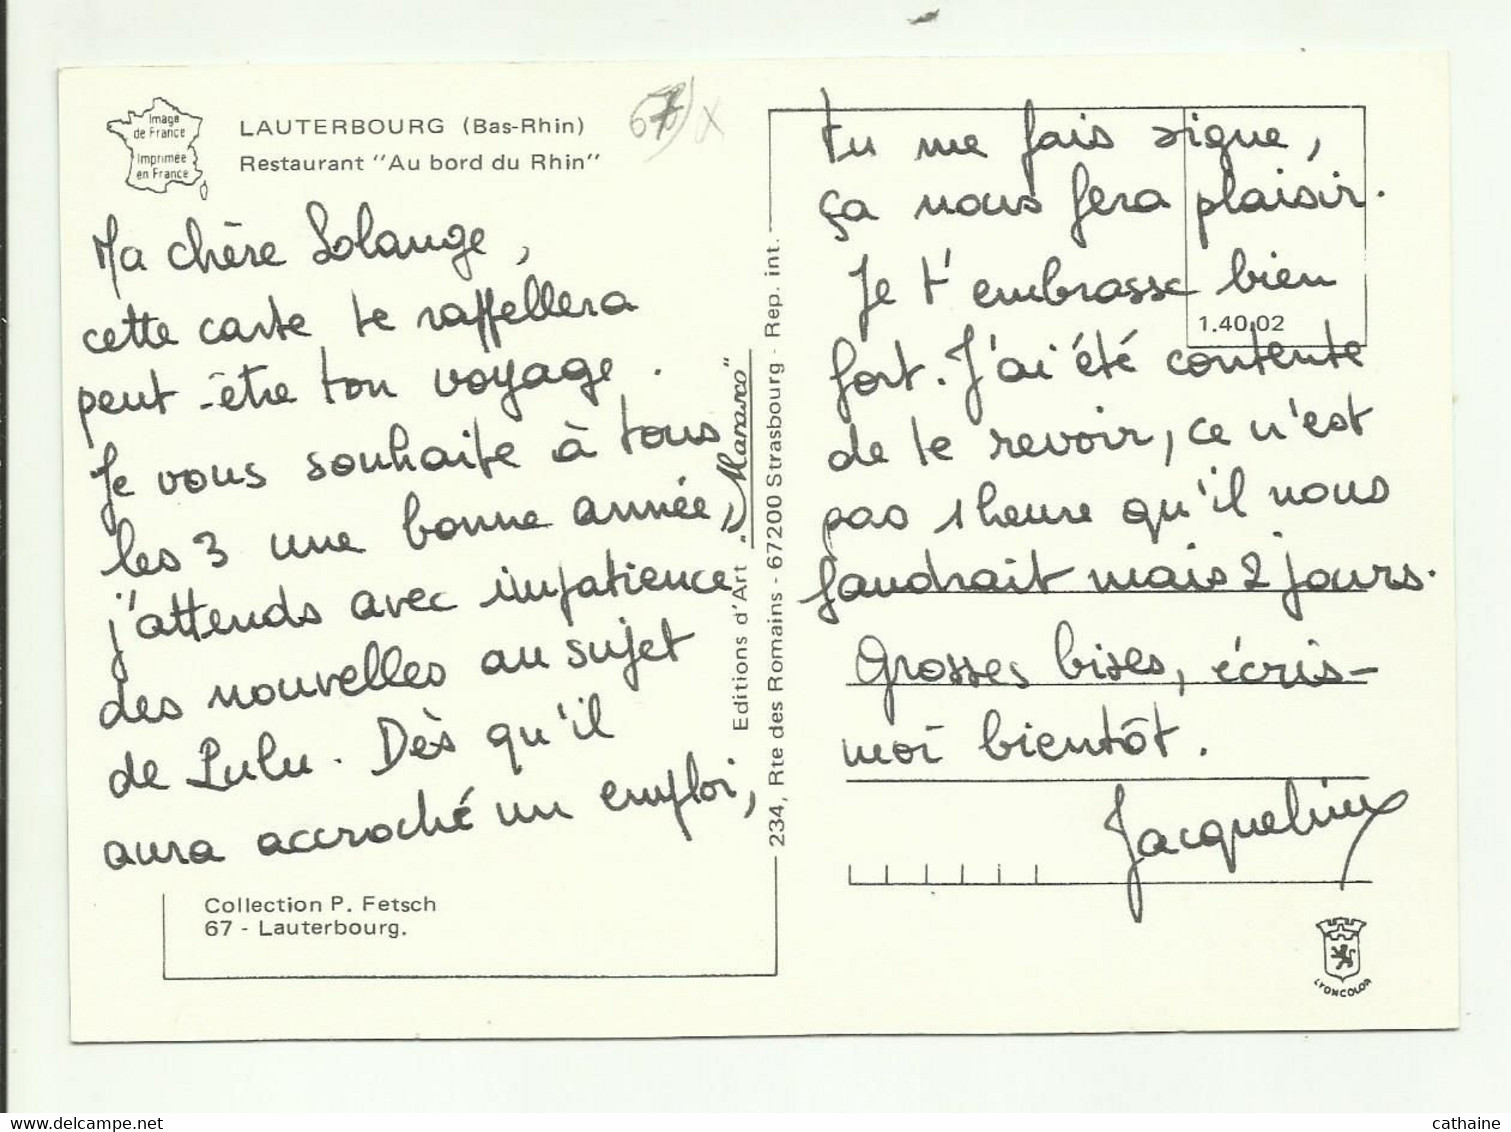 Image
de France
Imprimée
en France
LAUTERBOURG (Bas-Rhin)
Restaurant "Au bord du Rhin"
67
Ma chère Solange,
cette carte te rappellera
peut-être ton voyage.
Je vous souhaite à tous
les 3 une bonne année,
j'attends avec impatience
des nouvelles au sujet
de Lulu. Dès qu'il
aura accroché un emploi,
Collection P. Fetsch
67 - Lauterbourg.
Editions d'Art "Marasco"
234, Rte des Romains - 67200 Strasbourg - Rep. int.
tu me fais signe,
ça nous fera plaisir.
Je t'embrasse bien
1.40.02
fort. J'ai été contente
de te revoir, ce n'est
pas 1 heure qu'il nous
faudrait mais 2 jours.
Grosses bises, écris-
moi bientôt.
Jacqueline
LYONCOLOR
cathaine